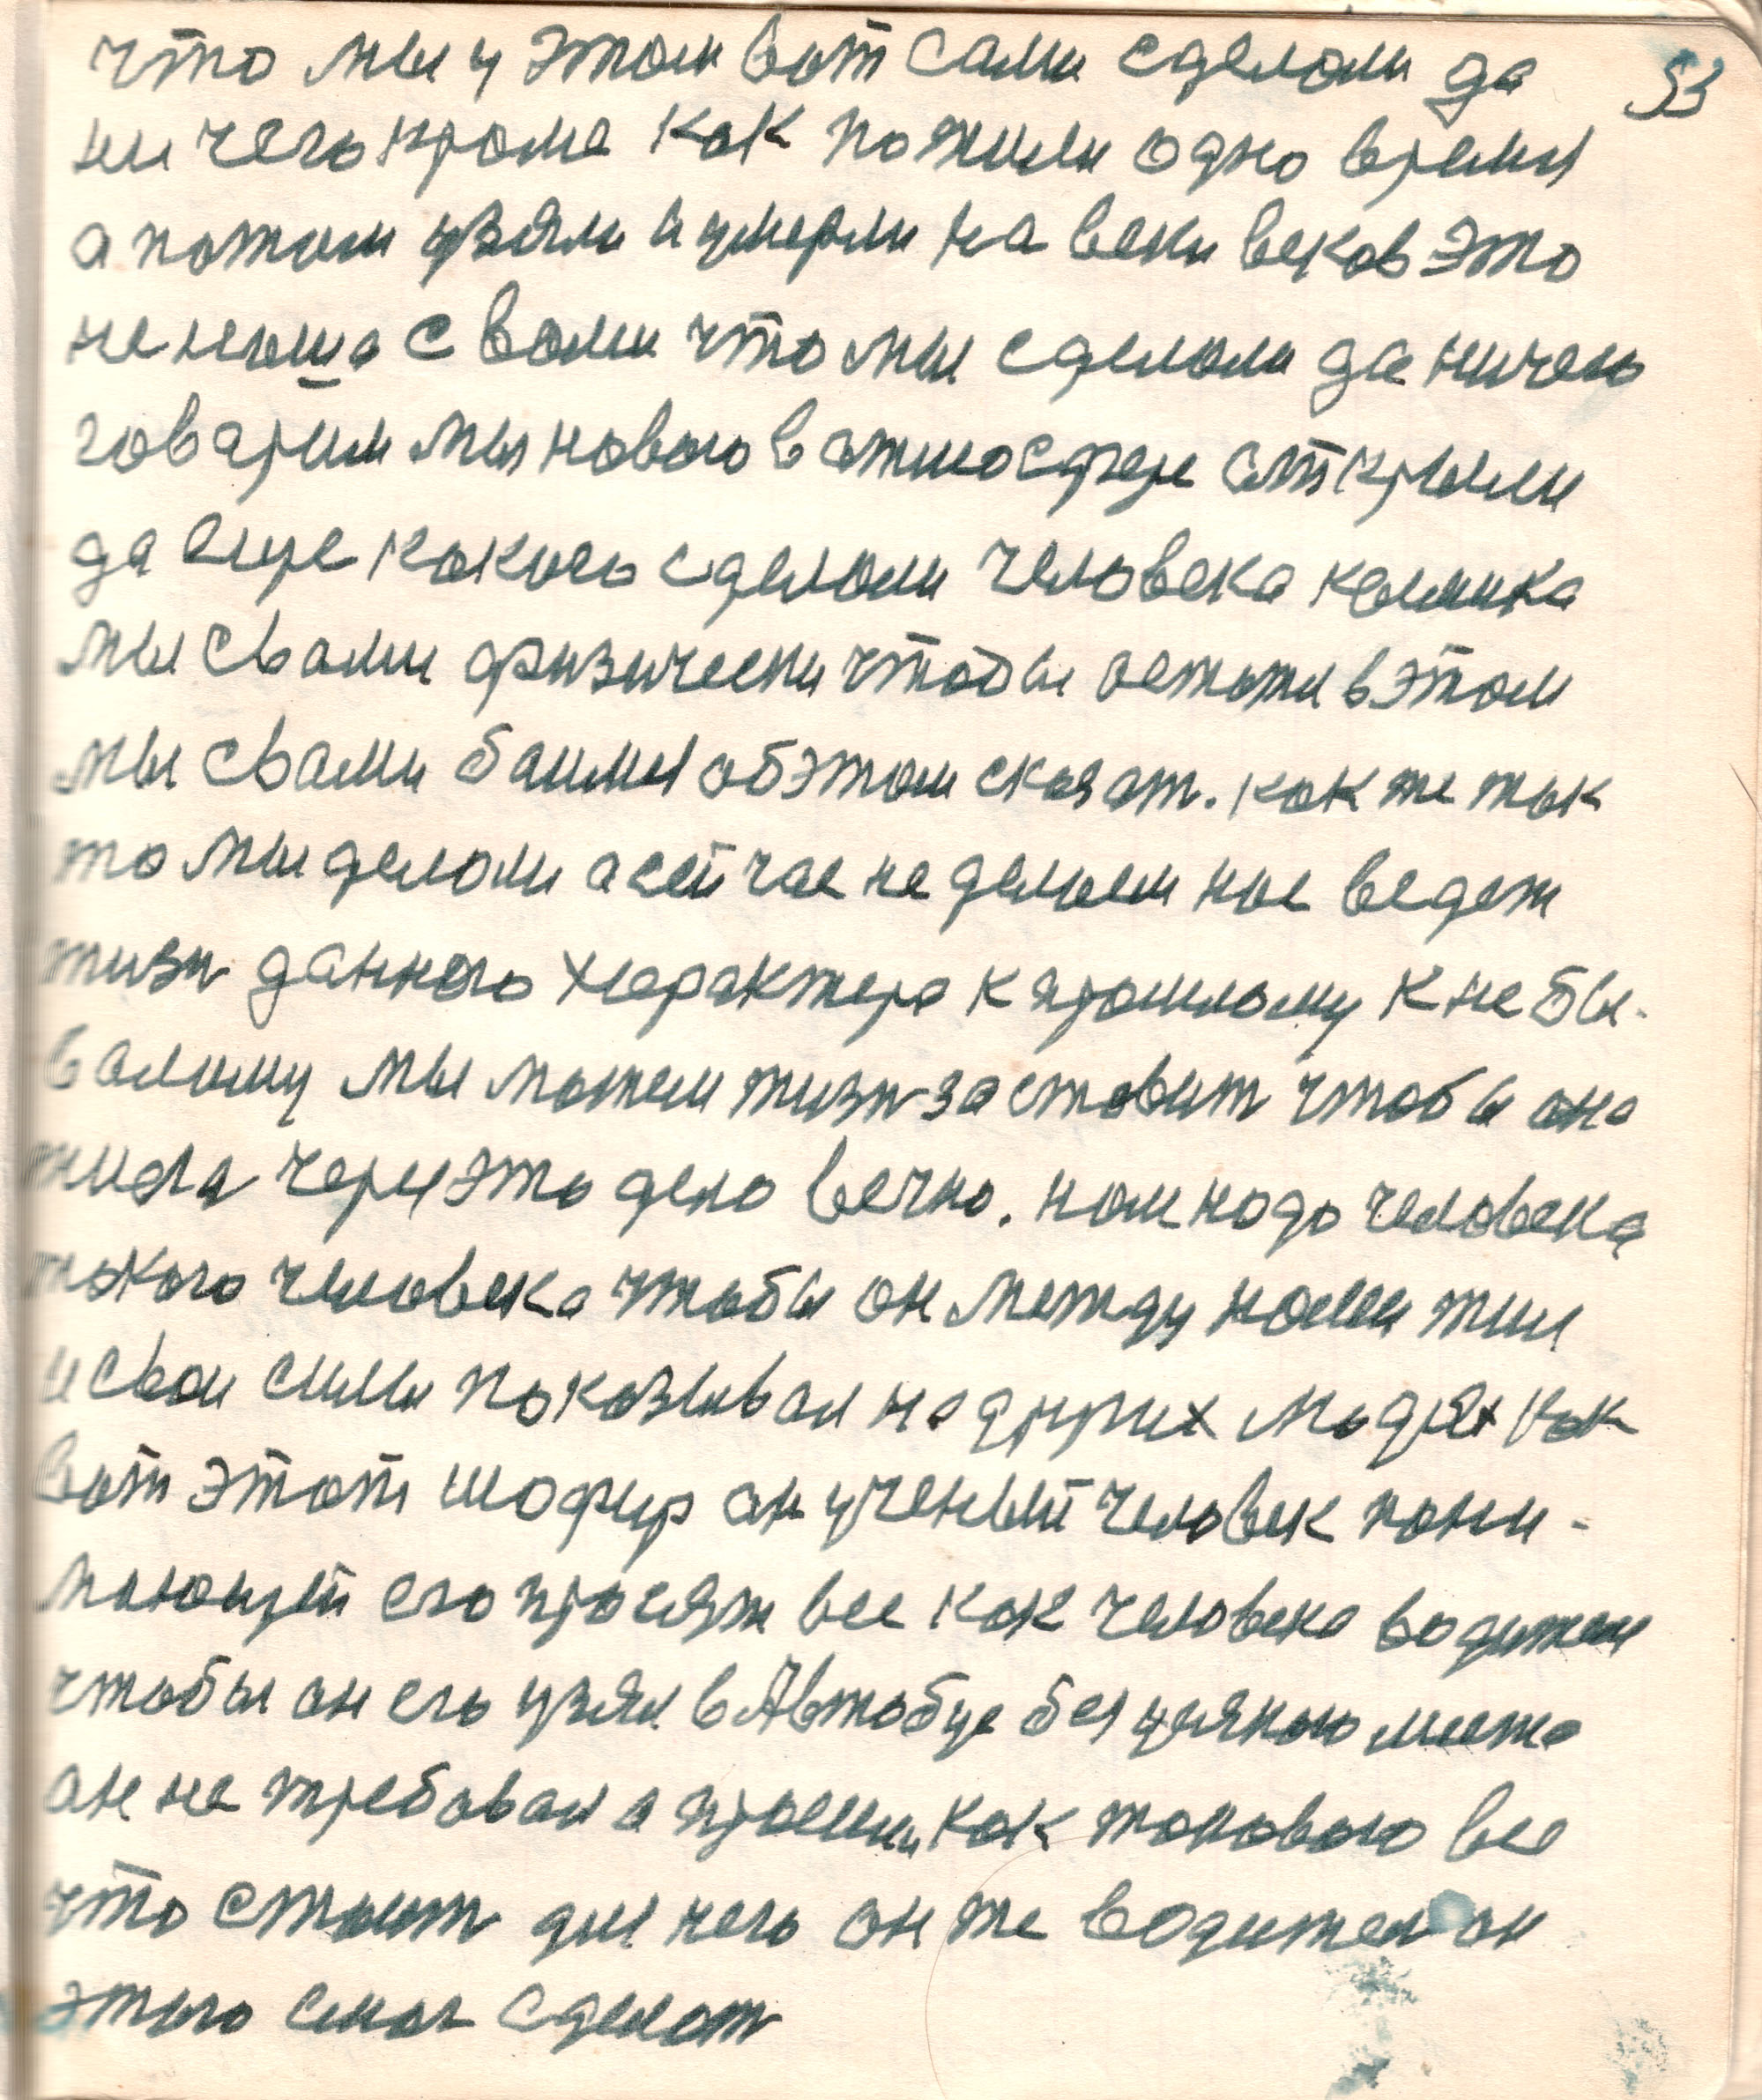 что мы у этом вот сами сделоли да 53
ни чего кроме как пожили одно время
а потом узяли и умерли на веки веков это
не наша с вами что мы сделоли да ничего
говарим мы нового в атмосфере открыли
да еще какого сделоли человека
мы свами физически чтобы в этом
мы свами баимся обэтом сказат. как же так
то мы делоли а сейчас не делаем нас ведет
жизн даннаго характера к прошлому к небы-
валому мы можем жизн заставит чтобы она
жила через это дело вечно. нам надо человека
такого человека чтобы он между нами жил
и свои силы показывал на других людях как
вот этот шофир он ученый человек пони-
мающей его просят все как человека водителя
чтобы он его узял в Автобус без усякого места
он не требовал а просили как токового все
что стоит для него он же водител он
этого смог сделат